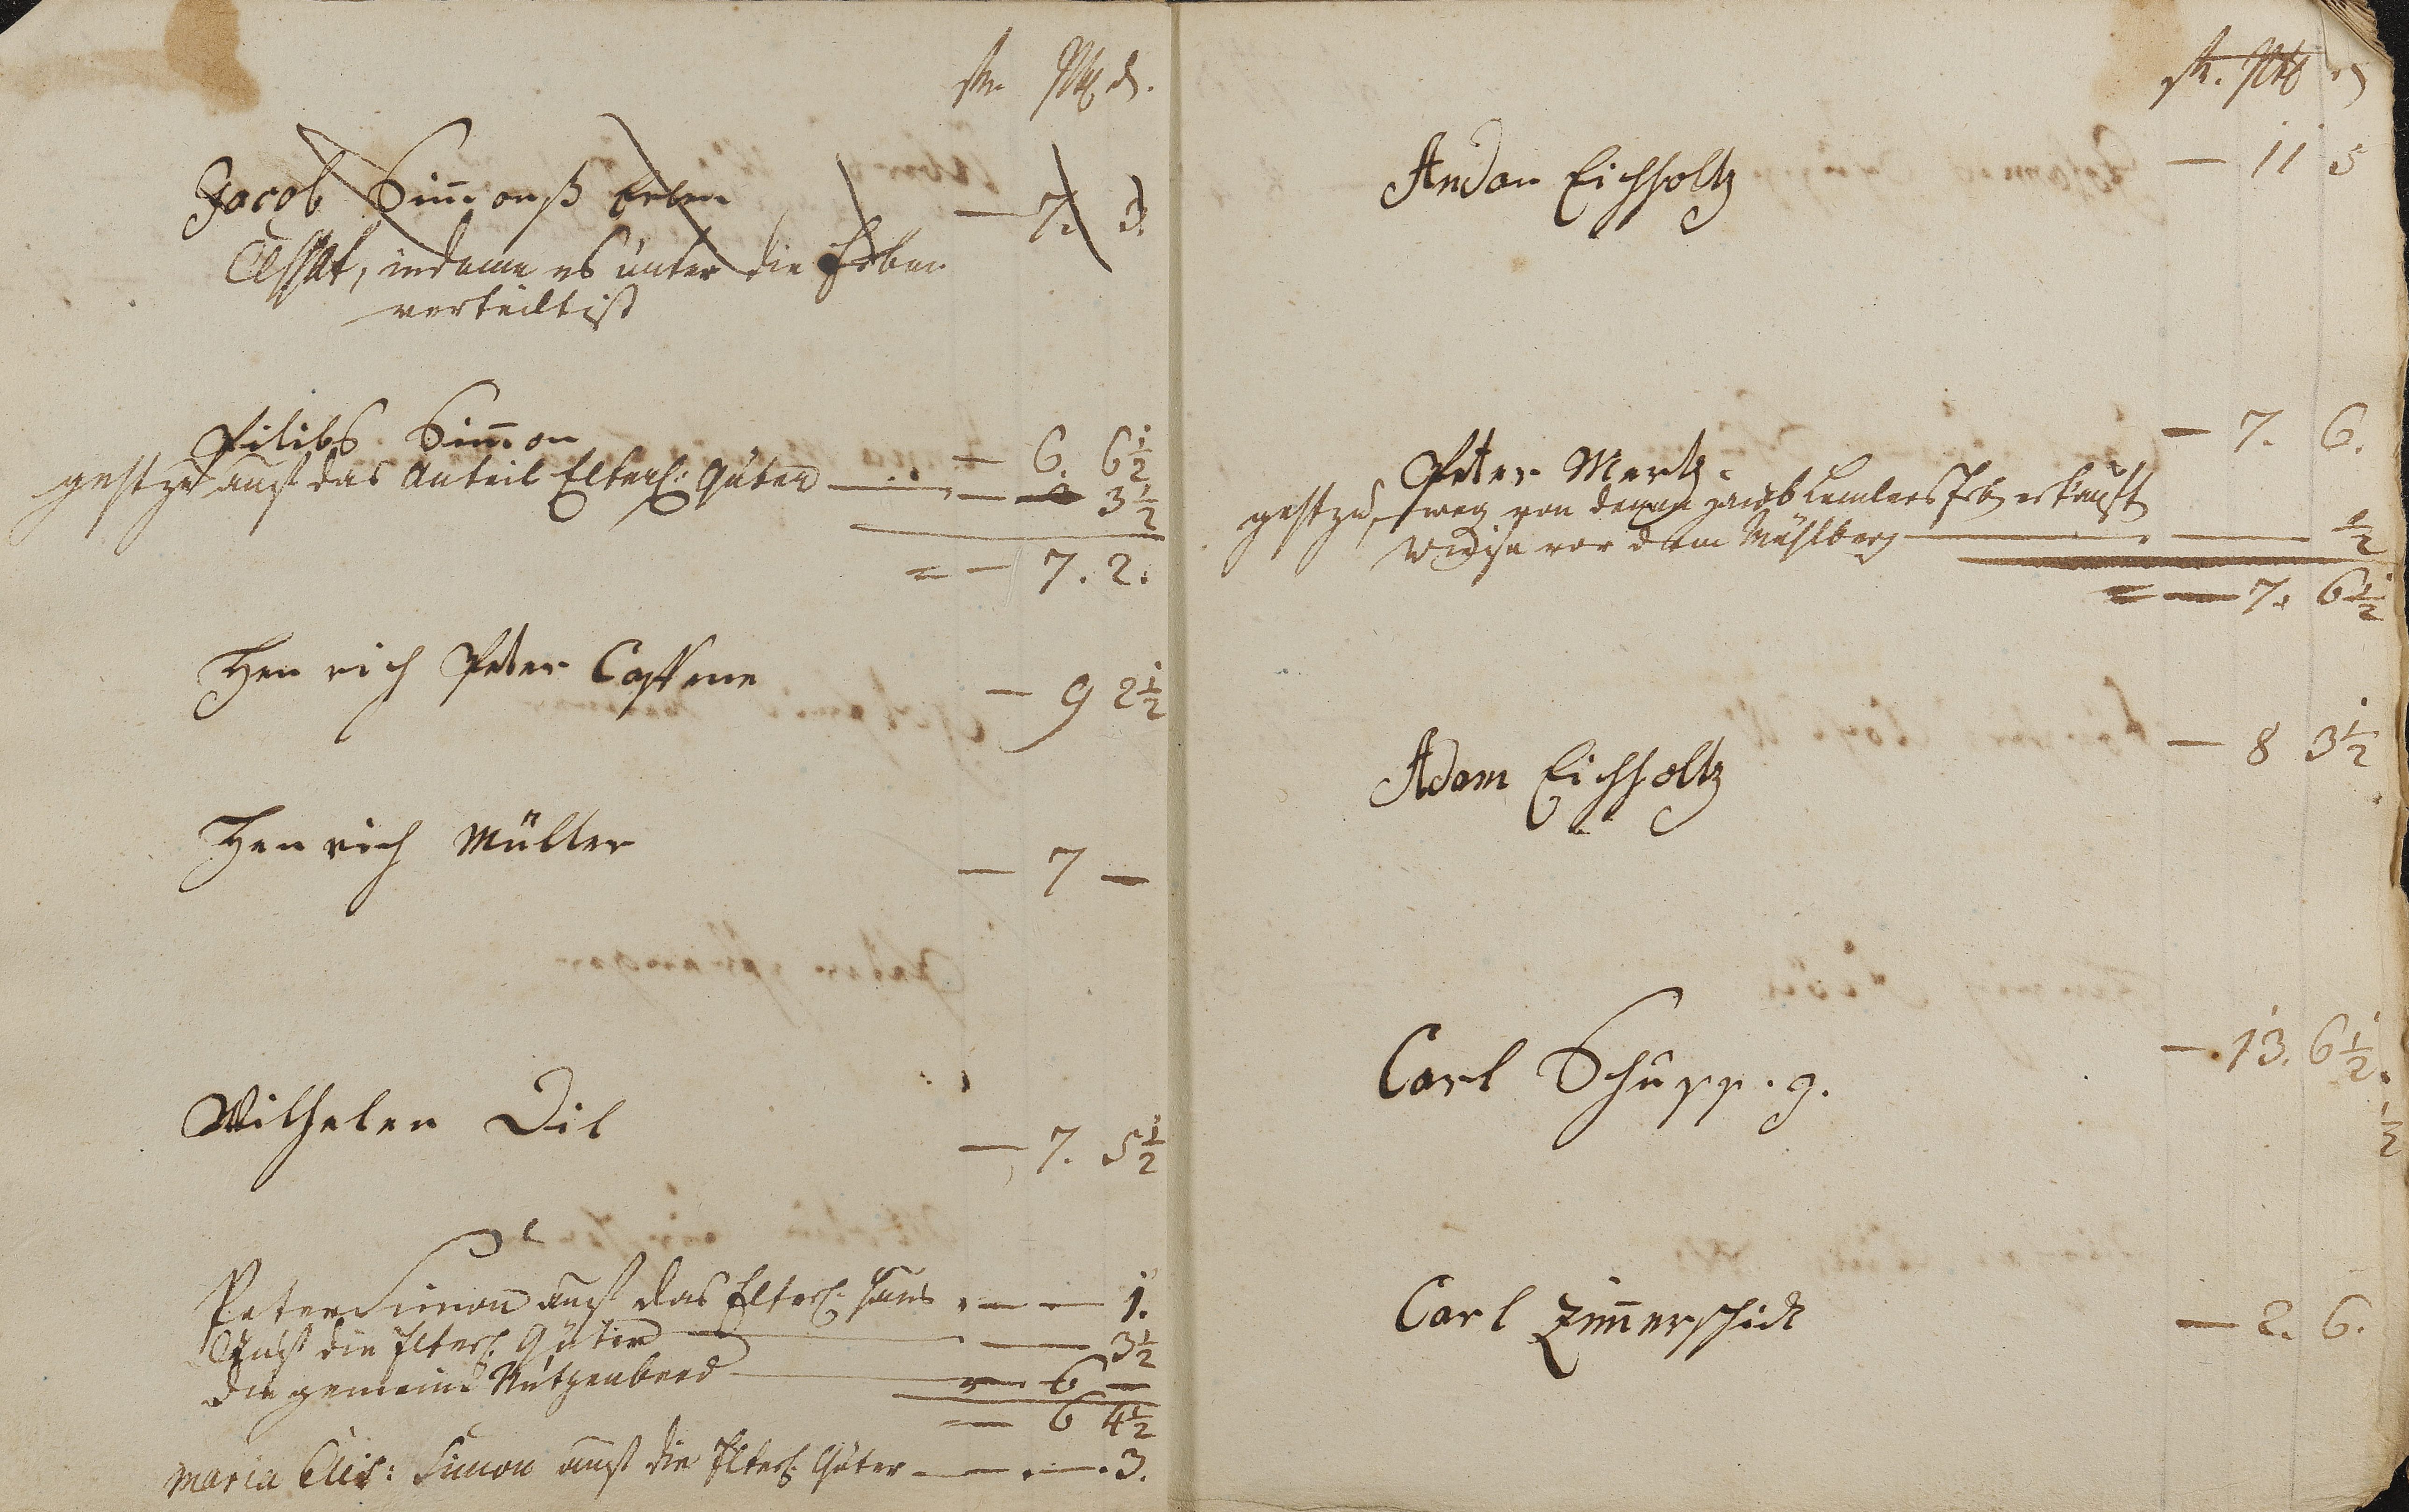 fl. Alb. d.
Jacob Simonß Erben — 7. 3.
Cessat, indeme es unter die Erben
verteilt ist
Pilibs Simon — 6. 6½
gest zu auf das Anteil Elterl: Güter — 3½
= — 7. 2.
Henrich Peter — 9 2½
Henrich Müller — 7 —
Wilhelm Dil — 7. 5½
Peter Simon auf das Elterl. Haus — 1.
Auf die Elterl. Güter — 3½
die gemeine — 6 —
— 6 4½
Maria Elis: Simon auf die Elterl. Güter — 3.
fl. Alb d
Andon Eichholtz — 11 5
Peter Mertz — 7. 6.
gest zu, weg von denen Jacob Erb erkauft
Wiese vor dem Mühlberg — ½
= — 7. 6½
Adam Eichholtz — 8 3½
Carl Schupp. g. — 13. 6½.
½
Carl Zimerschidt — 2. 6.